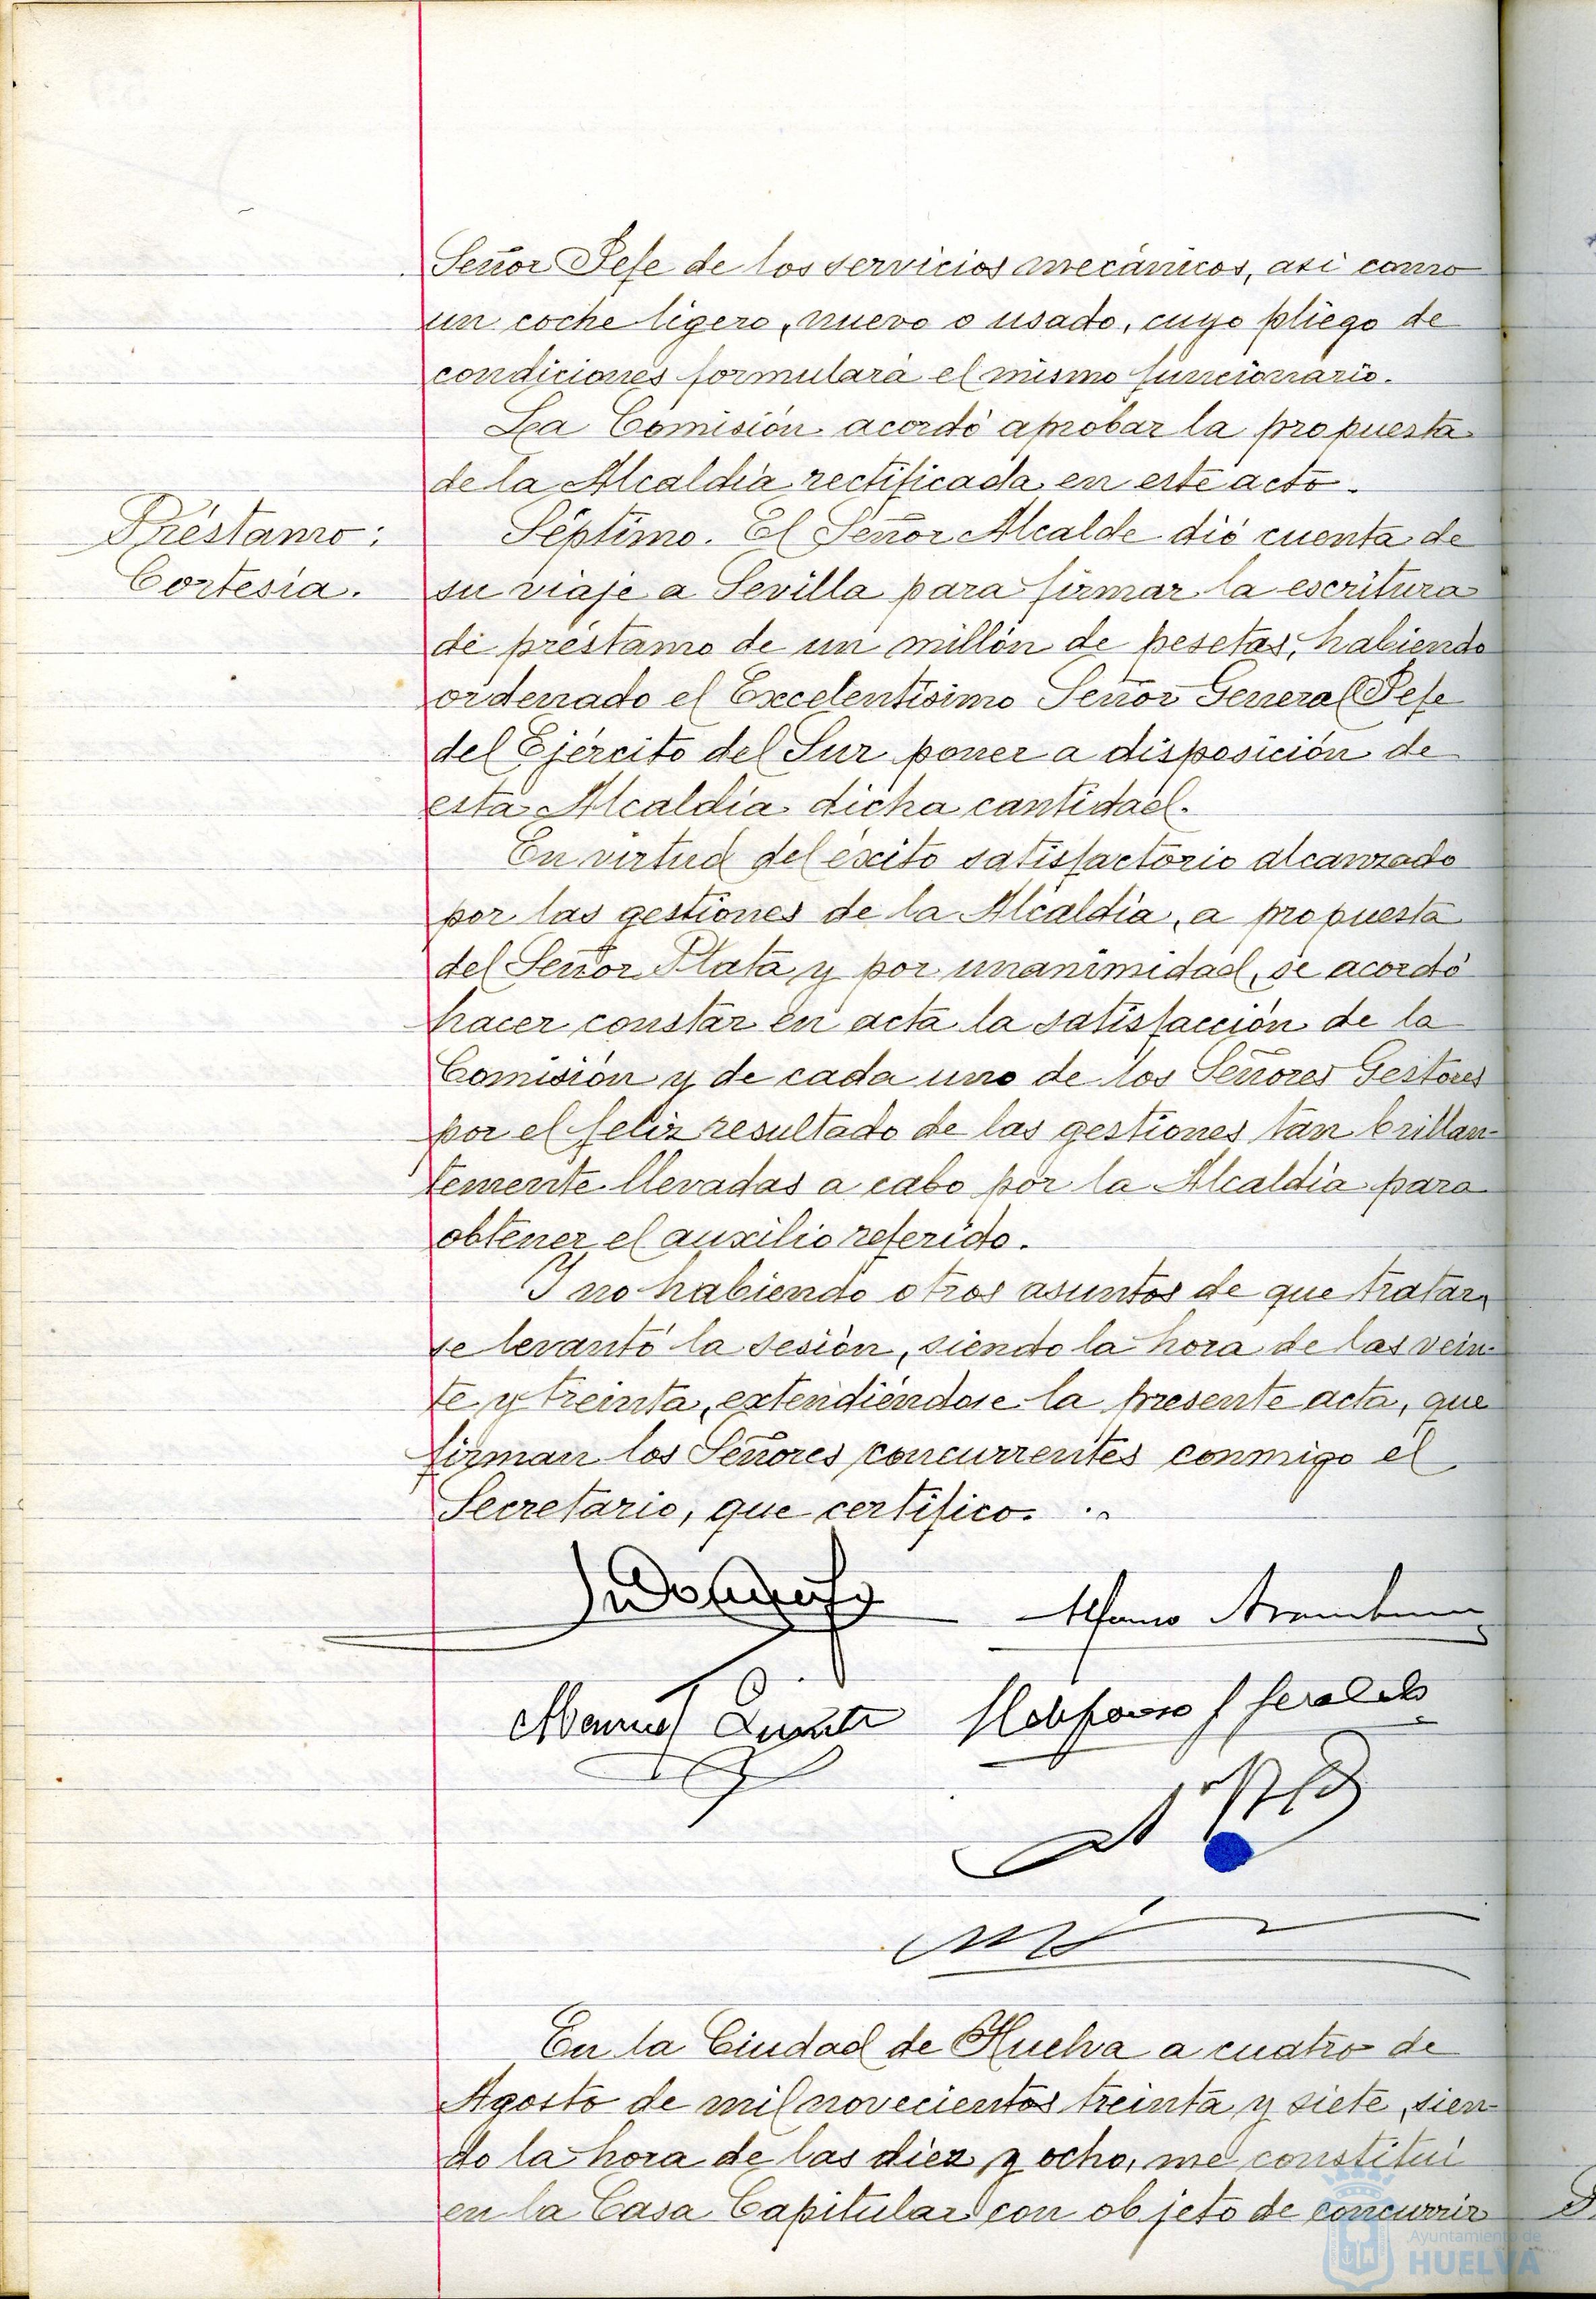 Señor Jefe de los servicios mecánicos, asi como
un coche ligero, nuevo o usado, cuyo pliego de
condiciones formulará el mismo funcionario.
La Comisión acordó aprobar la propuesta
de la Alcaldía rectificada en este acto.
Préstamo:
Cortesía.
Séptimo. El Señor Alcalde dió cuenta de
su viaje a Sevilla para firmar la escritura
de préstamo de un millón de pesetas, habiendo
ordenado el Excelentísimo Señor General Jefe
del Ejército del Sur poner a disposición de
esta Alcaldía dicha cantidad.
En virtud del éxito satisfactorio alcanzado
por las gestiones de la Alcaldía, a propuesta
del Señor Plata y por unanimidad, se acordó
hacer constar en acta la satisfacción de la
Comisión y de cada uno de los Señores Gestores
por el feliz resultado de las gestiones tan brillan-
temente llevadas a cabo por la Alcaldía para
obtener el auxilio referido.
Y no habiendo otros asuntos de que tratar,
se levantó la sesión, siendo la hora de las vein-
te y treinta, extendiéndose la presente acta, que
firman los Señores concurrentes conmigo el
Secretario, que certifico.
Manuel
En la Ciudad de Huelva a cuatro de
Agosto de mil novecientos treinta y siete, sien-
do la hora de las diez y ocho, me constituí
en la Casa Capitular con objeto de concurrir
Ayuntamiento de
HUELVA